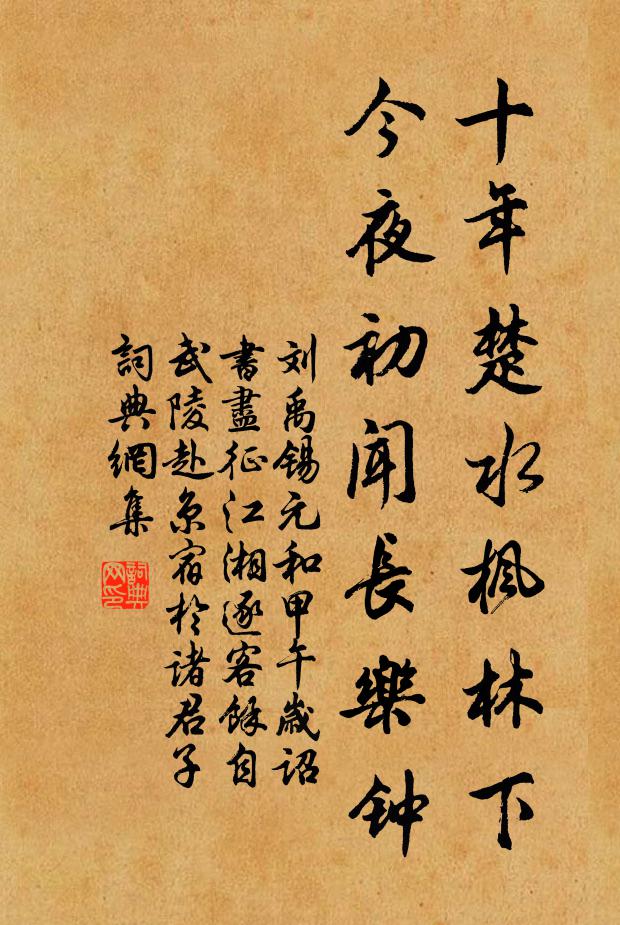 十年楚水枫林下
今夜初闻長樂钟
刘禹锡元和甲午歲诏
書盡征江湘逐客餘自
武陵赴京宿於诸君子
詞典網集
詞典網印